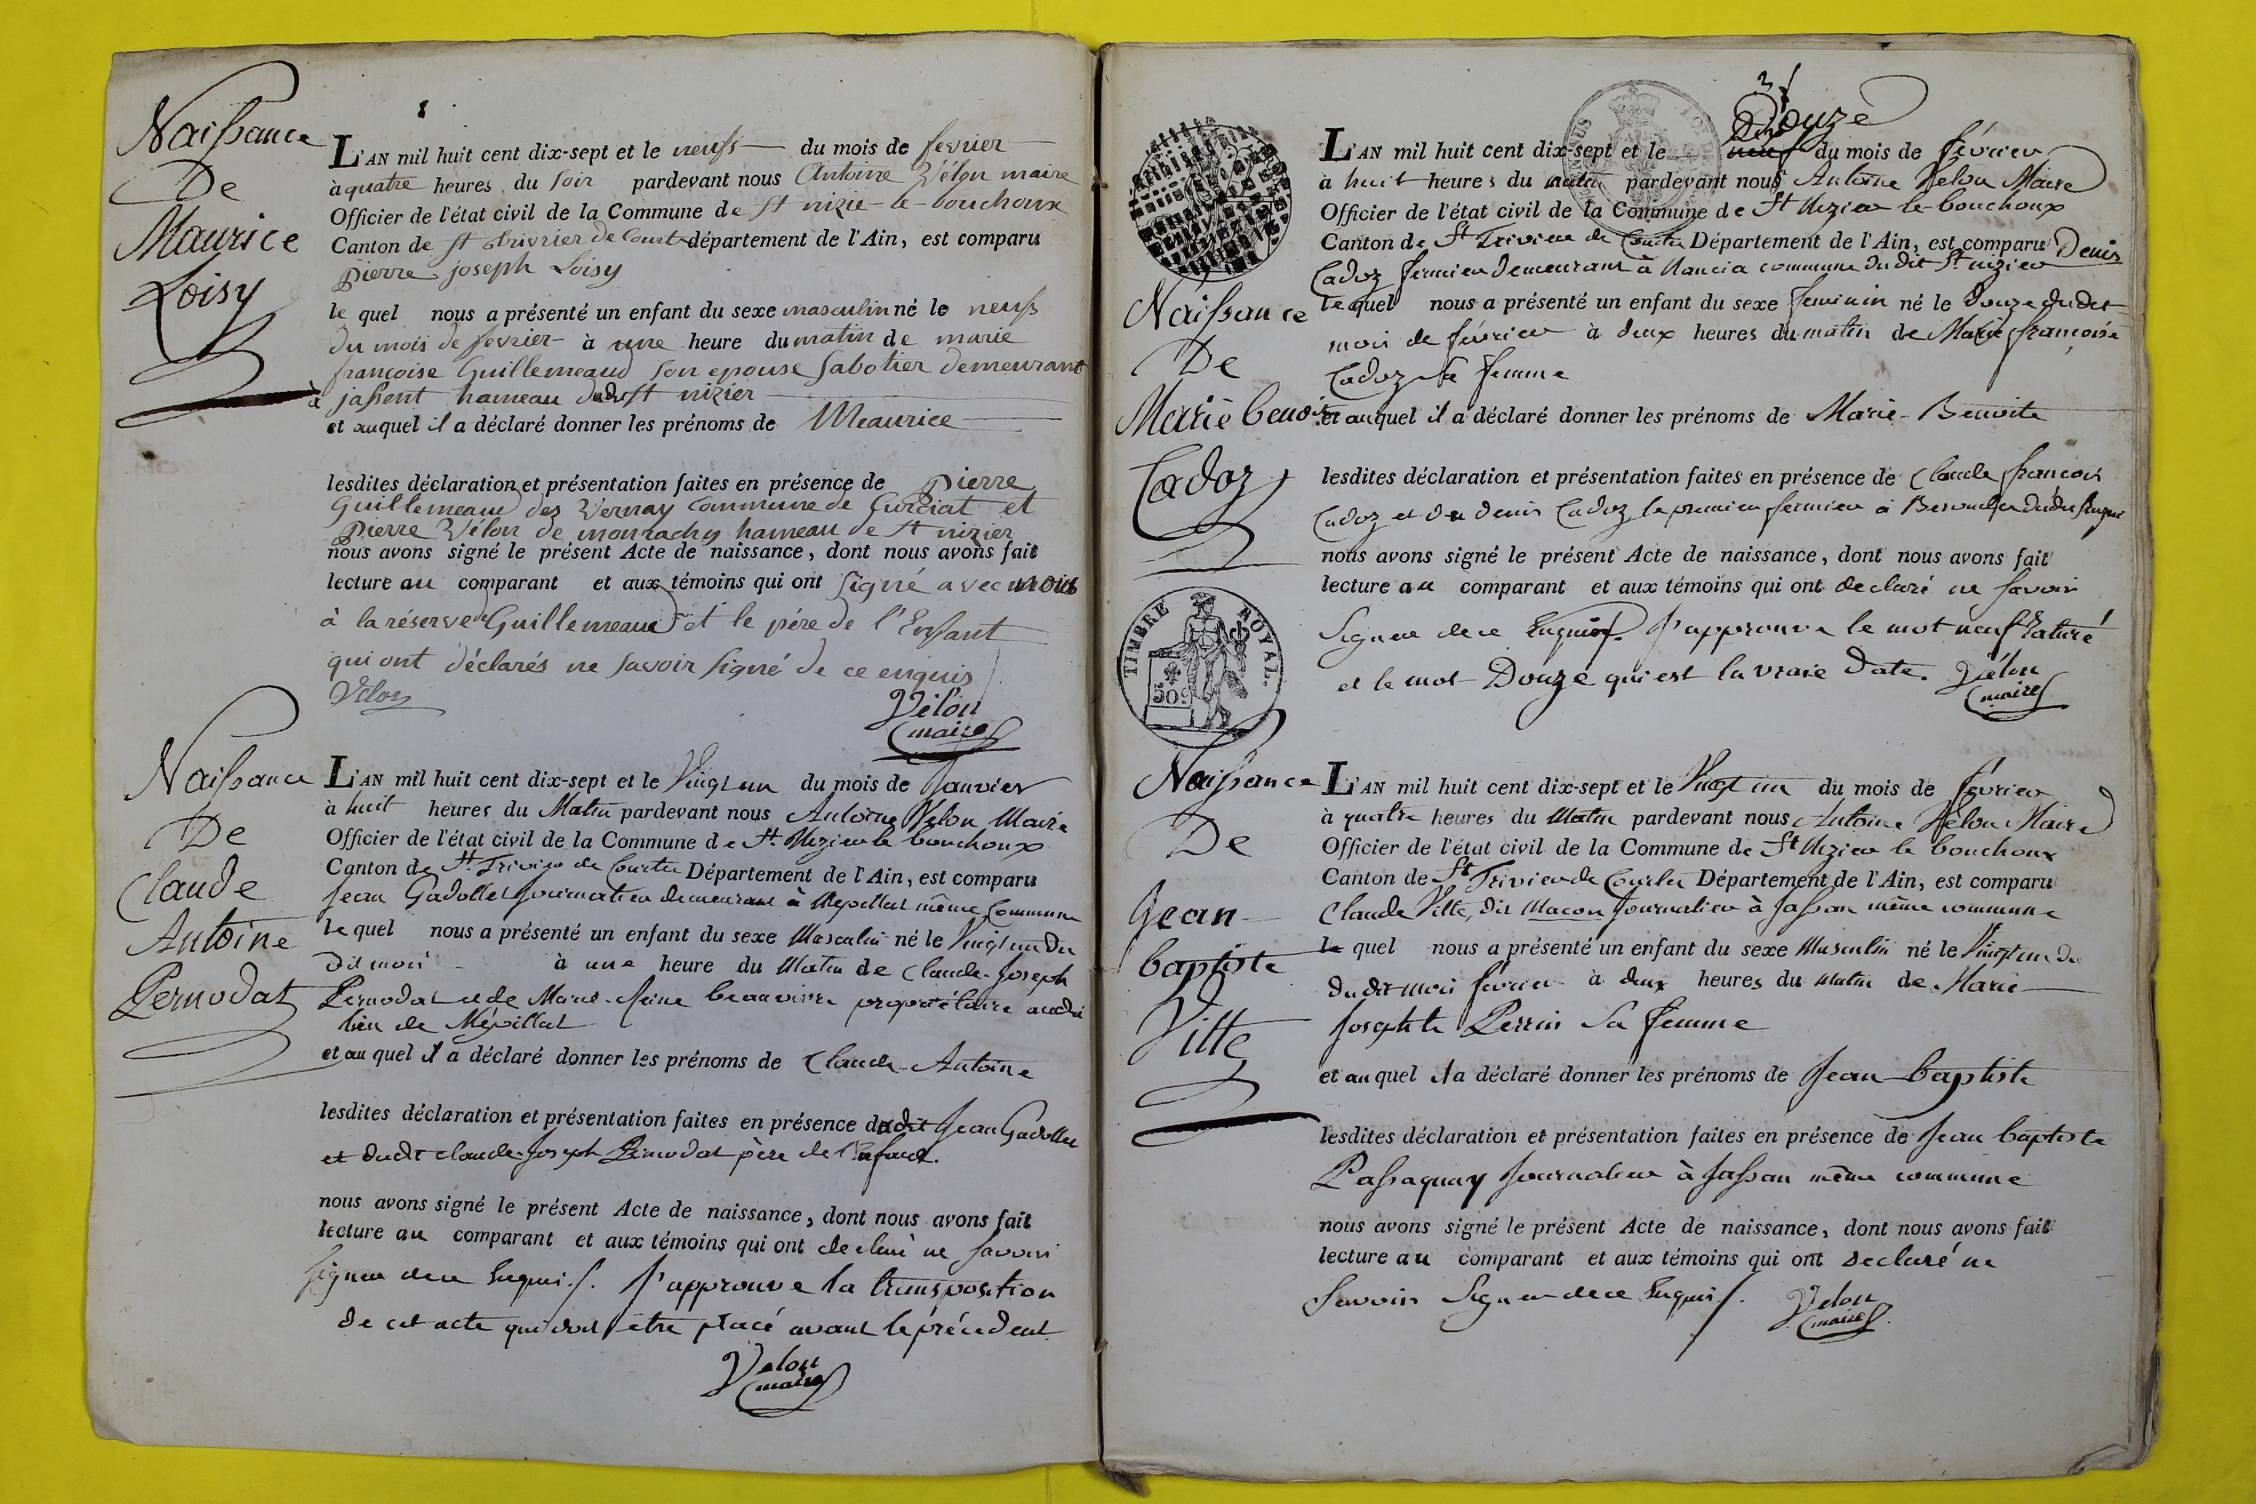 Naissance
De
Maurice
Loisy
L'AN mil huit cent dix-sept et le neufs du mois de fevrier
à quatre heures du soir pardevant nous Antoine Vélon maire
Officier de l'état civil de la Commune de St nizie-le-bouchoux
Canton de St trivrier de Courte département de l'Ain, est comparu
pierre joseph Loisy
le quel nous a présenté un enfant du sexe masculin né le neufs
du mois de fevrier à une heure du matin de marie
françoise Guillemeaud son epouse Sabotier demeurant
à jassent hameau dudt St nizier
et auquel il a déclaré donner les prénoms de Meaurice
lesdites déclaration et présentation faites en présence de pierre
Guillemeaud des Vernay commune de Curciat et
pierre Vélon de montrachy hameau de St nizier
nous avons signé le présent Acte de naissance, dont nous avons fait
lecture au comparant et aux témoins qui ont signé avec nous
à la réserve de Guillemeaud et le père de l'Enfant
qui ont déclarés ne savoir signé de ce enquis
Vélon
Vélon
maire
Naissance
De
Claude
Antoine
Pernodat
L'AN mil huit cent dix-sept et le Vingt un du mois de Janvier
à huit heures du Matin pardevant nous Antoine Velon Maire
Officier de l'état civil de la Commune de St. Nizier le bouchoux
Canton de St. Trivier de Courtes Département de l'Ain, est comparu
Jean Gadollet journalier demeurant à Mépillat même Commune
le quel nous a présenté un enfant du sexe Masculin né le Vingt un du
dit mois à une heure du Matin de Claude-Joseph
Pernodat et de Marie-Reine beauvire propriétaire audit
lieu de Mépillat
et au quel il a déclaré donner les prénoms de Claude-Antoine
lesdites déclaration et présentation faites en présence dudit Jean Gadollet
et dudit claude-Joseph Pernodat père de l'Enfant.
nous avons signé le présent Acte de naissance, dont nous avons fait
lecture au comparant et aux témoins qui ont declaré ne Savoir
Signer de ce Enquis. J'approuve la transposition
de cet acte qui doit être placé avant le précédent
Velon
maire
Douze
L'AN mil huit cent dix-sept et le neuf du mois de février
à huit heures du matin pardevant nous Antoine Vélon Maire
Officier de l'état civil de la Commune de St Nizier le-bouchoux
Canton de St Trivier de Courtes Département de l'Ain, est comparu Denis
Cadoz fermier demeurant à Nancia commune du dit St. nizier
Naissance
De
Marie benoite
Cadoz
le quel nous a présenté un enfant du sexe feminin né le Douze du dit
mois de février à deux heures du matin de Marie françoise
Cadoz sa femme
et auquel il a déclaré donner les prénoms de Marie-Benoite
lesdites déclaration et présentation faites en présence de Claude françois
Cadoz et de denis Cadoz le premier fermier à
nous avons signé le présent Acte de naissance, dont nous avons fait
lecture au comparant et aux témoins qui ont declaré ne savoir
Signer de ce Enquis. J'approuve le mot neuf raturé
et le mot Douze qui est la vraie date. Vélon
maire
TIMBRE ROYAL.
50c
Naissance
De
Jean
baptiste
Vitte
L'AN mil huit cent dix-sept et le Vingt un du mois de février
à quatre heures du Matin pardevant nous Antoine Vélon Maire
Officier de l'état civil de la Commune de St Nizier le bouchoux
Canton de St Trivier de Courtes Département de l'Ain, est comparu
Claude Vitte, dit Macon Journalier à Jassan même commune
le quel nous a présenté un enfant du sexe Masculin né le Vingt un du
du dit mois février à deux heures du matin de Marie
Josephte Perrin Sa femme
et au quel il a déclaré donner les prénoms de Jean-baptiste
lesdites déclaration et présentation faites en présence de Jean baptiste
Passaquay Journalier à Jassan même commune
nous avons signé le présent Acte de naissance, dont nous avons fait
lecture au comparant et aux témoins qui ont declaré ne
Savoir Signer de ce Enquis. Velon
maire